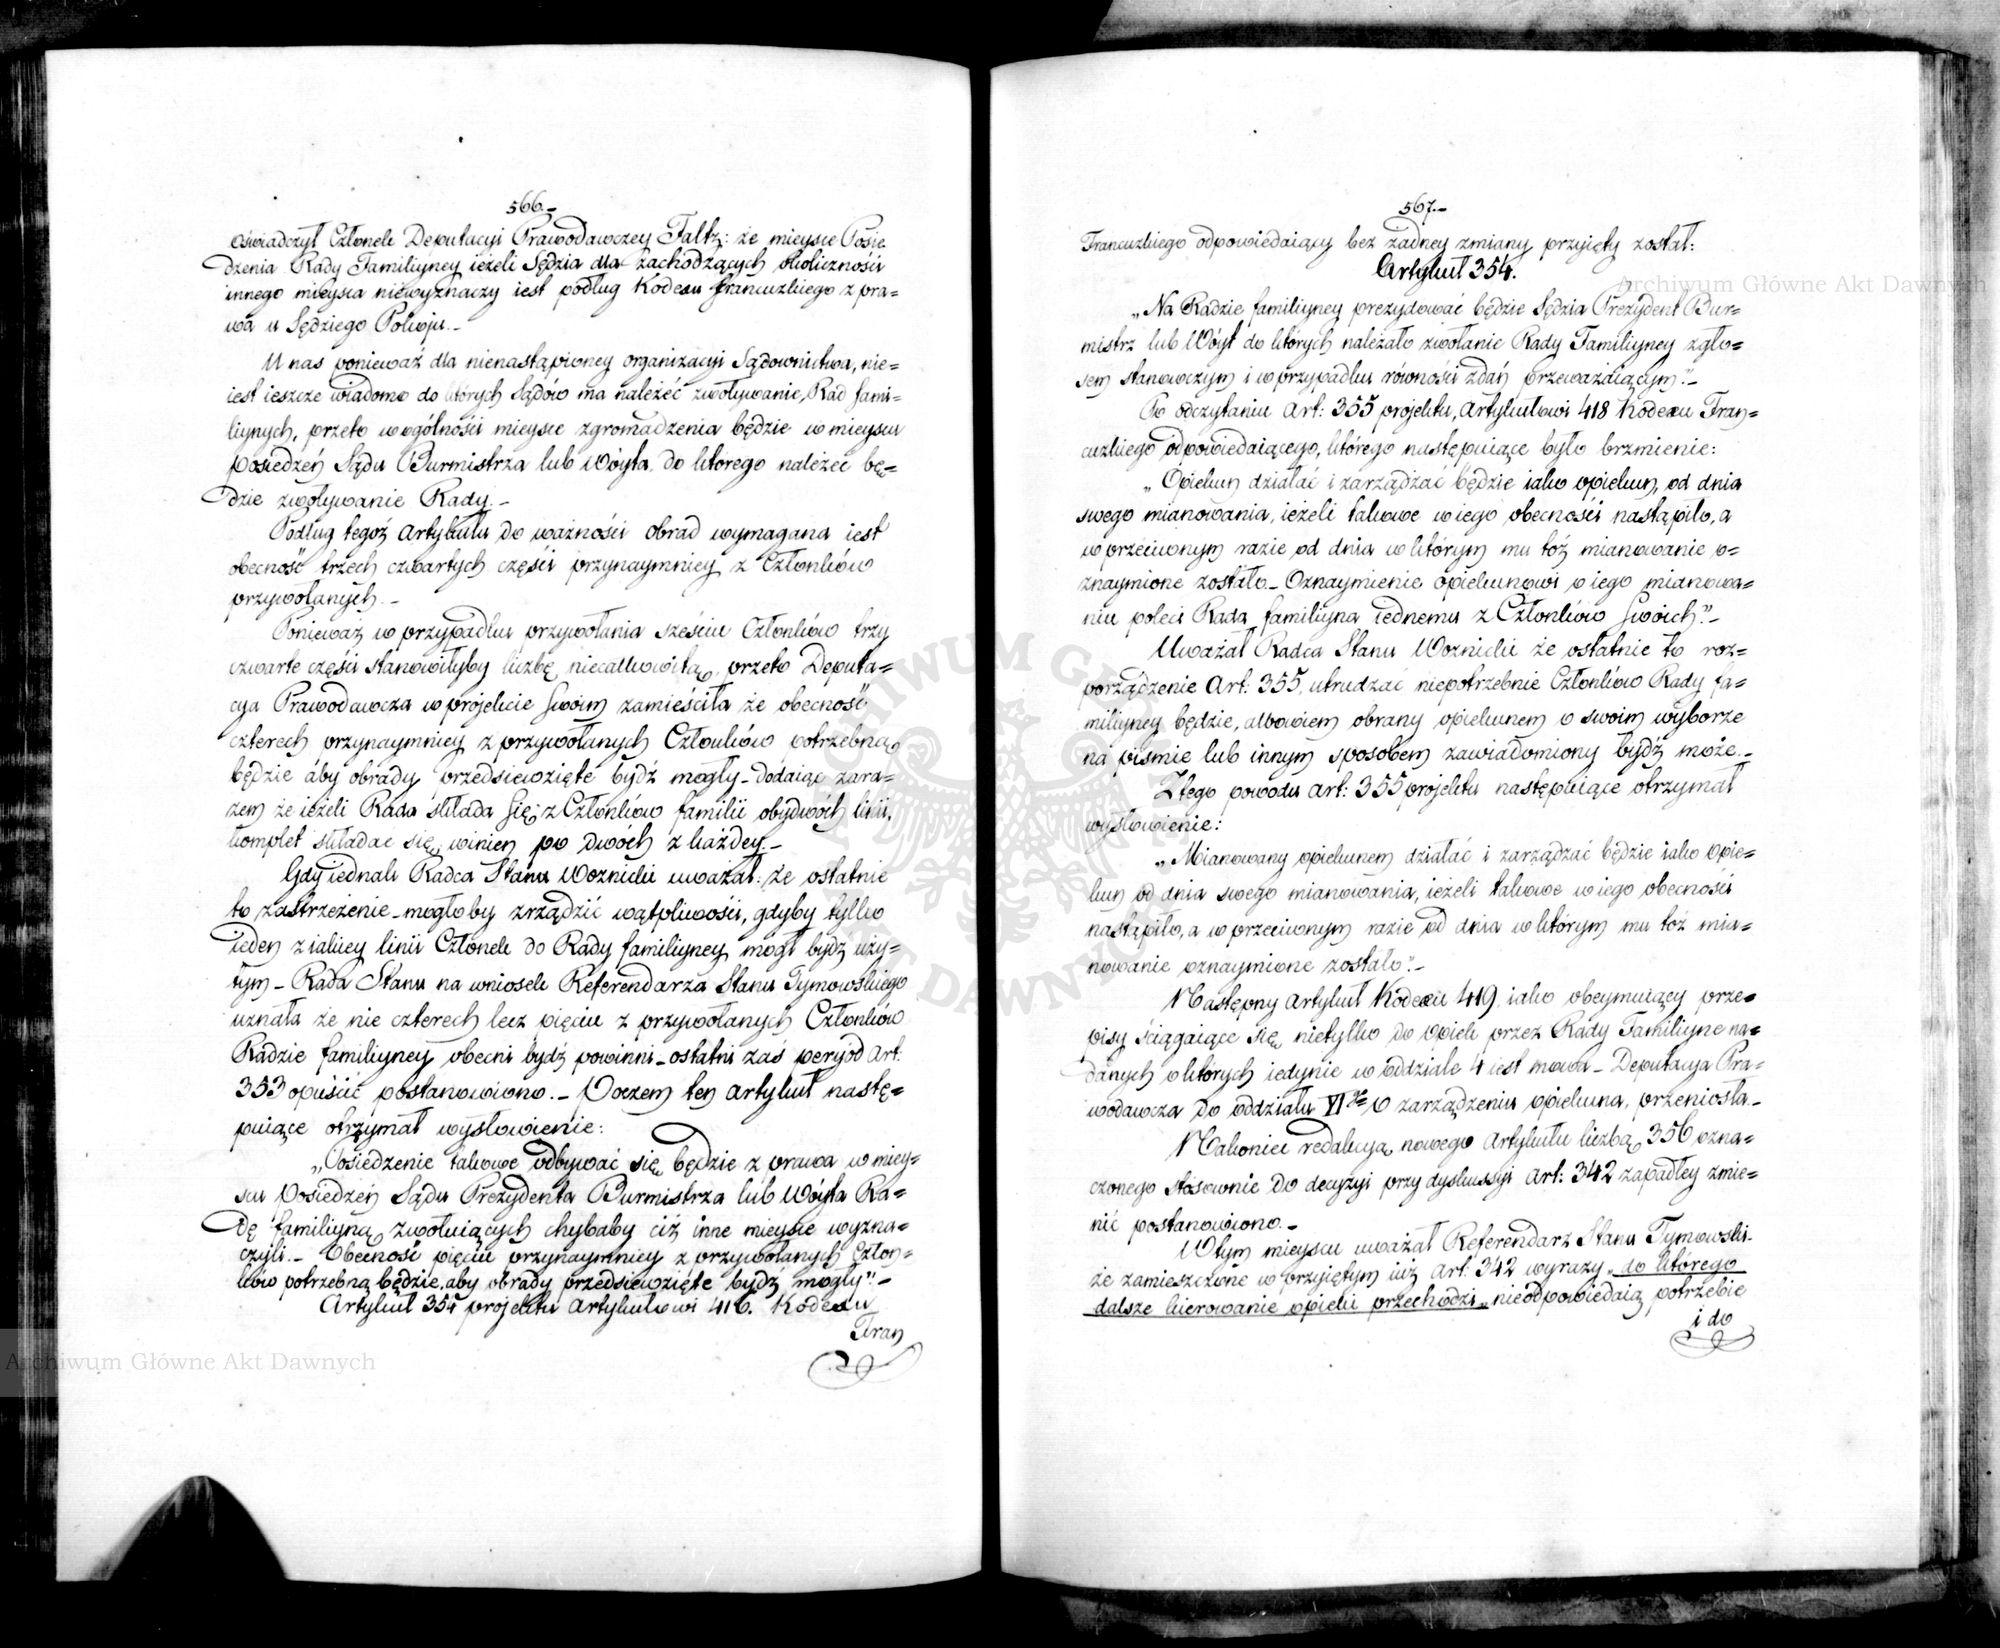 566.-
oświadczył Członek Deputacyi Prawodawczey Faltz: że mieysce Posie
dzenia Rady Familiyney ieżeli Sędzia dla zachodzących okoliczności
innego mieysca niewyznaczy iest podług Kodexu francuzkiego z pra=
wa u Sędziego Pokoju.-
U nas ponieważ dla nienastąpioney organizacyi Sądownictwa, nie=
iest ieszcze wiadomo do których Sądów ma należeć zwoływanie Rad fami=
liynych, przeto wogólności mieysce zgromadzenia będzie w mieyscu
posiedzeń Sądu Burmistrza lub Wóyta, do którego należeć bę=
dzie zwoływanie Rady.-
Podług tegoż Artykułu do ważności obrad wymagana iest
obecność trzech czwartych części przynaymniey z Członków
przywołanych.-
Ponieważ w przypadku przywołania sześciu Członków trzy
czwarte części stanowiłyby liczbę niecałkowitą, przeto Deputa=
cya Prawodawcza w projekcie swoim zamieściła że obecność
czterech przynaymniey z przywołanych Członków potrzebną
będzie aby obrady przedsiewzięte bydź mogły - dodaiąc zara=
zem że ieżeli Rada składa się z Członków familii obydwóch linii,
komplet składać się winien po dwóch z każdey.-
Gdy iednak Radca Stanu Woznicki uważał: że ostatnie
to zastrzeżenie - mogłoby zrządzić wątpliwości, gdyby tylko
ieden z iakiey linii Członek do Rady familiyney mógł bydź uży=
tym - Rada Stanu na wniosek Referendarza Stanu Tymowskiego
uznała że nie czterech lecz pięciu z przywołanych Członków
Radzie familiyney obecni bydź powinni - ostatni zaś peryod Art:
353 opuścić postanowiono.- Poczem ten Artykuł nastę=
puiące otrzymał wysłowienie:
„Posiedzenie takowe odbywać się będzie z prawa w miey=
scu Posiedzeń Sądu Prezydenta Burmistrza lub Wóyta Ra=
dę familiyną zwołuiących chybaby ciż inne mieysce wyzna=
czyli.- Obecność pięciu przynaymniey z przywołanych Człon=
ków potrzebną będzie, aby obrady przedsiewzięte bydź mogły".-
Artykuł 354 projektu Artykułowi 416. Kodexu
Fran
567.-
Francuzkiego odpowiedaiący bez żadney zmiany przyięty został:
Artykuł 354.
„Na Radzie familiyney prezydować będzie Sędzia Prezydent Bur=
mistrz lub Wóyt do których należało zwołanie Rady Familiyney z gło=
sem stanowczym i w przypadku równości zdań przeważaiącym".-
Po odczytaniu Art: 355 projektu, Artykułowi 418 Kodexu Fran=
cuzkiego odpowiedaiącego, którego następuiące było brzmienie:
„Opiekun działać i zarządzać będzie iako opiekun, od dnia
swego mianowania, ieżeli takowe w iego obecności nastąpiło, a
w przeciwnym razie od dnia w którym mu toż mianowanie o=
znaymione zostało - Oznaymienie opiekunowi o iego mianowa=
niu poleci Rada familiyna iednemu z Członków swoich".-
Uważał Radca Stanu Woznicki że ostatnie to roz=
porządzenie Art: 355, utrudzać niepotrzebnie Członków Rady fa=
miliyney będzie, albowiem obrany opiekunem o swoim wyborze
na piśmie lub innym sposobem zawiadomiony bydź może.-
Z tego powodu Art: 355 projektu następuiące otrzymał
wysłowienie:
„Mianowany opiekunem działać i zarządzać będzie iako Opie=
kun od dnia swego mianowania, ieżeli takowe w iego obecności
nastąpiło, a w przeciwnym razie od dnia w którym mu toż mia=
nowanie oznaymione zostało".-
Następny Artykuł Kodexu 419 iako obeymuiący prze=
pisy ściągaiące się nietylko do opiek przez Rady Familiyne na=
danych o których iedynie w oddziale 4 iest mowa - Deputacya Pra=
wodawcza do oddziału VIgo o zarządzeniu opiekuna, przeniosła.-
Nakoniec redakcyą nowego Artykułu liczbą 356 ozna=
czonego stosownie do decyzyi przy dyskussyi Art: 342 zapadłey zmie=
nić postanowiono.-
W tym mieyscu uważał Referendarz Stanu Tymowski
że zamieszczone w przyiętym iuż Art: 342 wyrazy „do którego
dalsze kierowanie opieki przechodzi„ nieodpowiedaią potrzebie
i do
Archiwum Główne Akt Dawnych
Archiwum Główne Akt Dawnych
ARCHIWUM GŁÓWNE AKT DAWNYCH